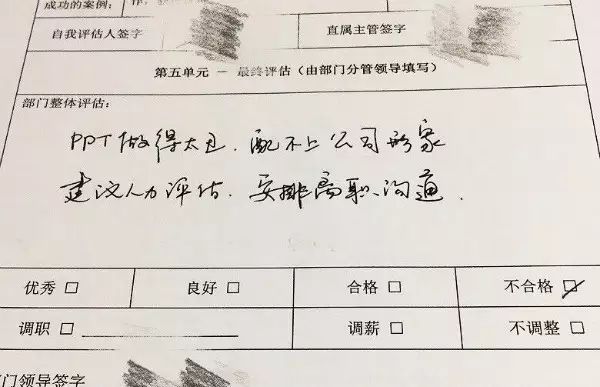 成功的案例:
自我评估人签字 直属主管签字
第五单元 — 最终评估（由部门分管领导填写）
部门整体评估:
PPT做得太丑.配不上公司形象
建议人力评估.安排离职沟通.
优秀 □ 良好 □ 合格 □ 不合格 ☑
调职 □ 调薪 □ 不调整 □
门领导签字